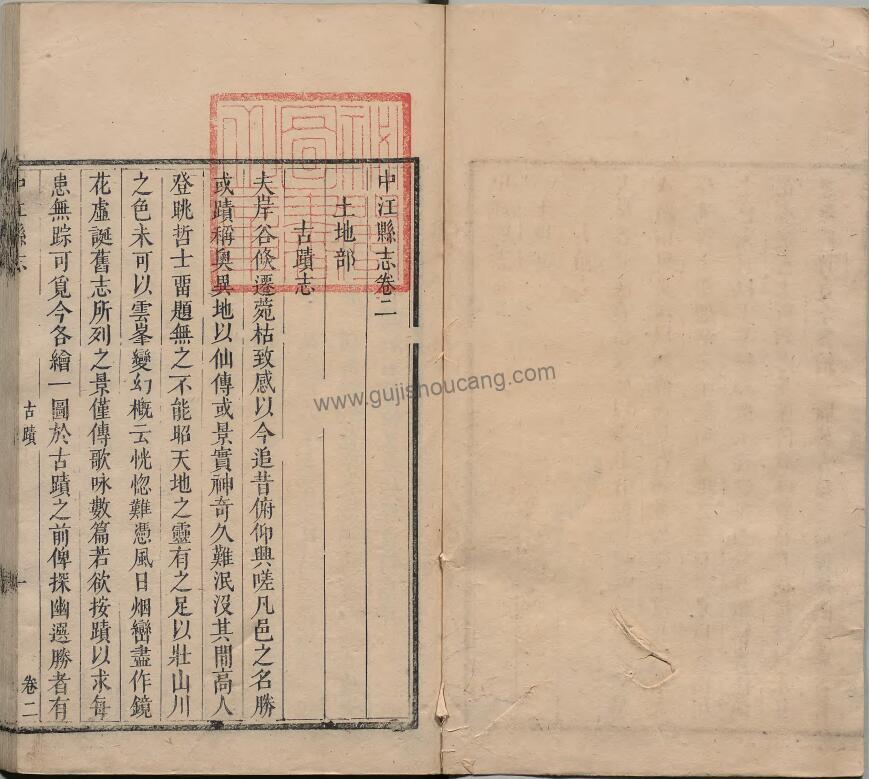 中江縣志卷二
土地部
古蹟志
夫岸谷倏遷菀枯致感以今追昔俯仰興嗟凡邑之名勝
或蹟稱奧異地以仙傳或景實神奇久難泯沒其間高人
登眺哲士畱題無之不能昭天地之靈有之足以壯山川
之色未可以雲峯變幻概云恍惚難憑風日烟巒盡作鏡
花虛誕舊志所列之景僅傳歌咏數篇若欲按蹟以求每
患無踪可覓今各繪一圖於古蹟之前俾探幽選勝者有
中江縣志
古蹟
一
卷二
www.gujishoucang.com